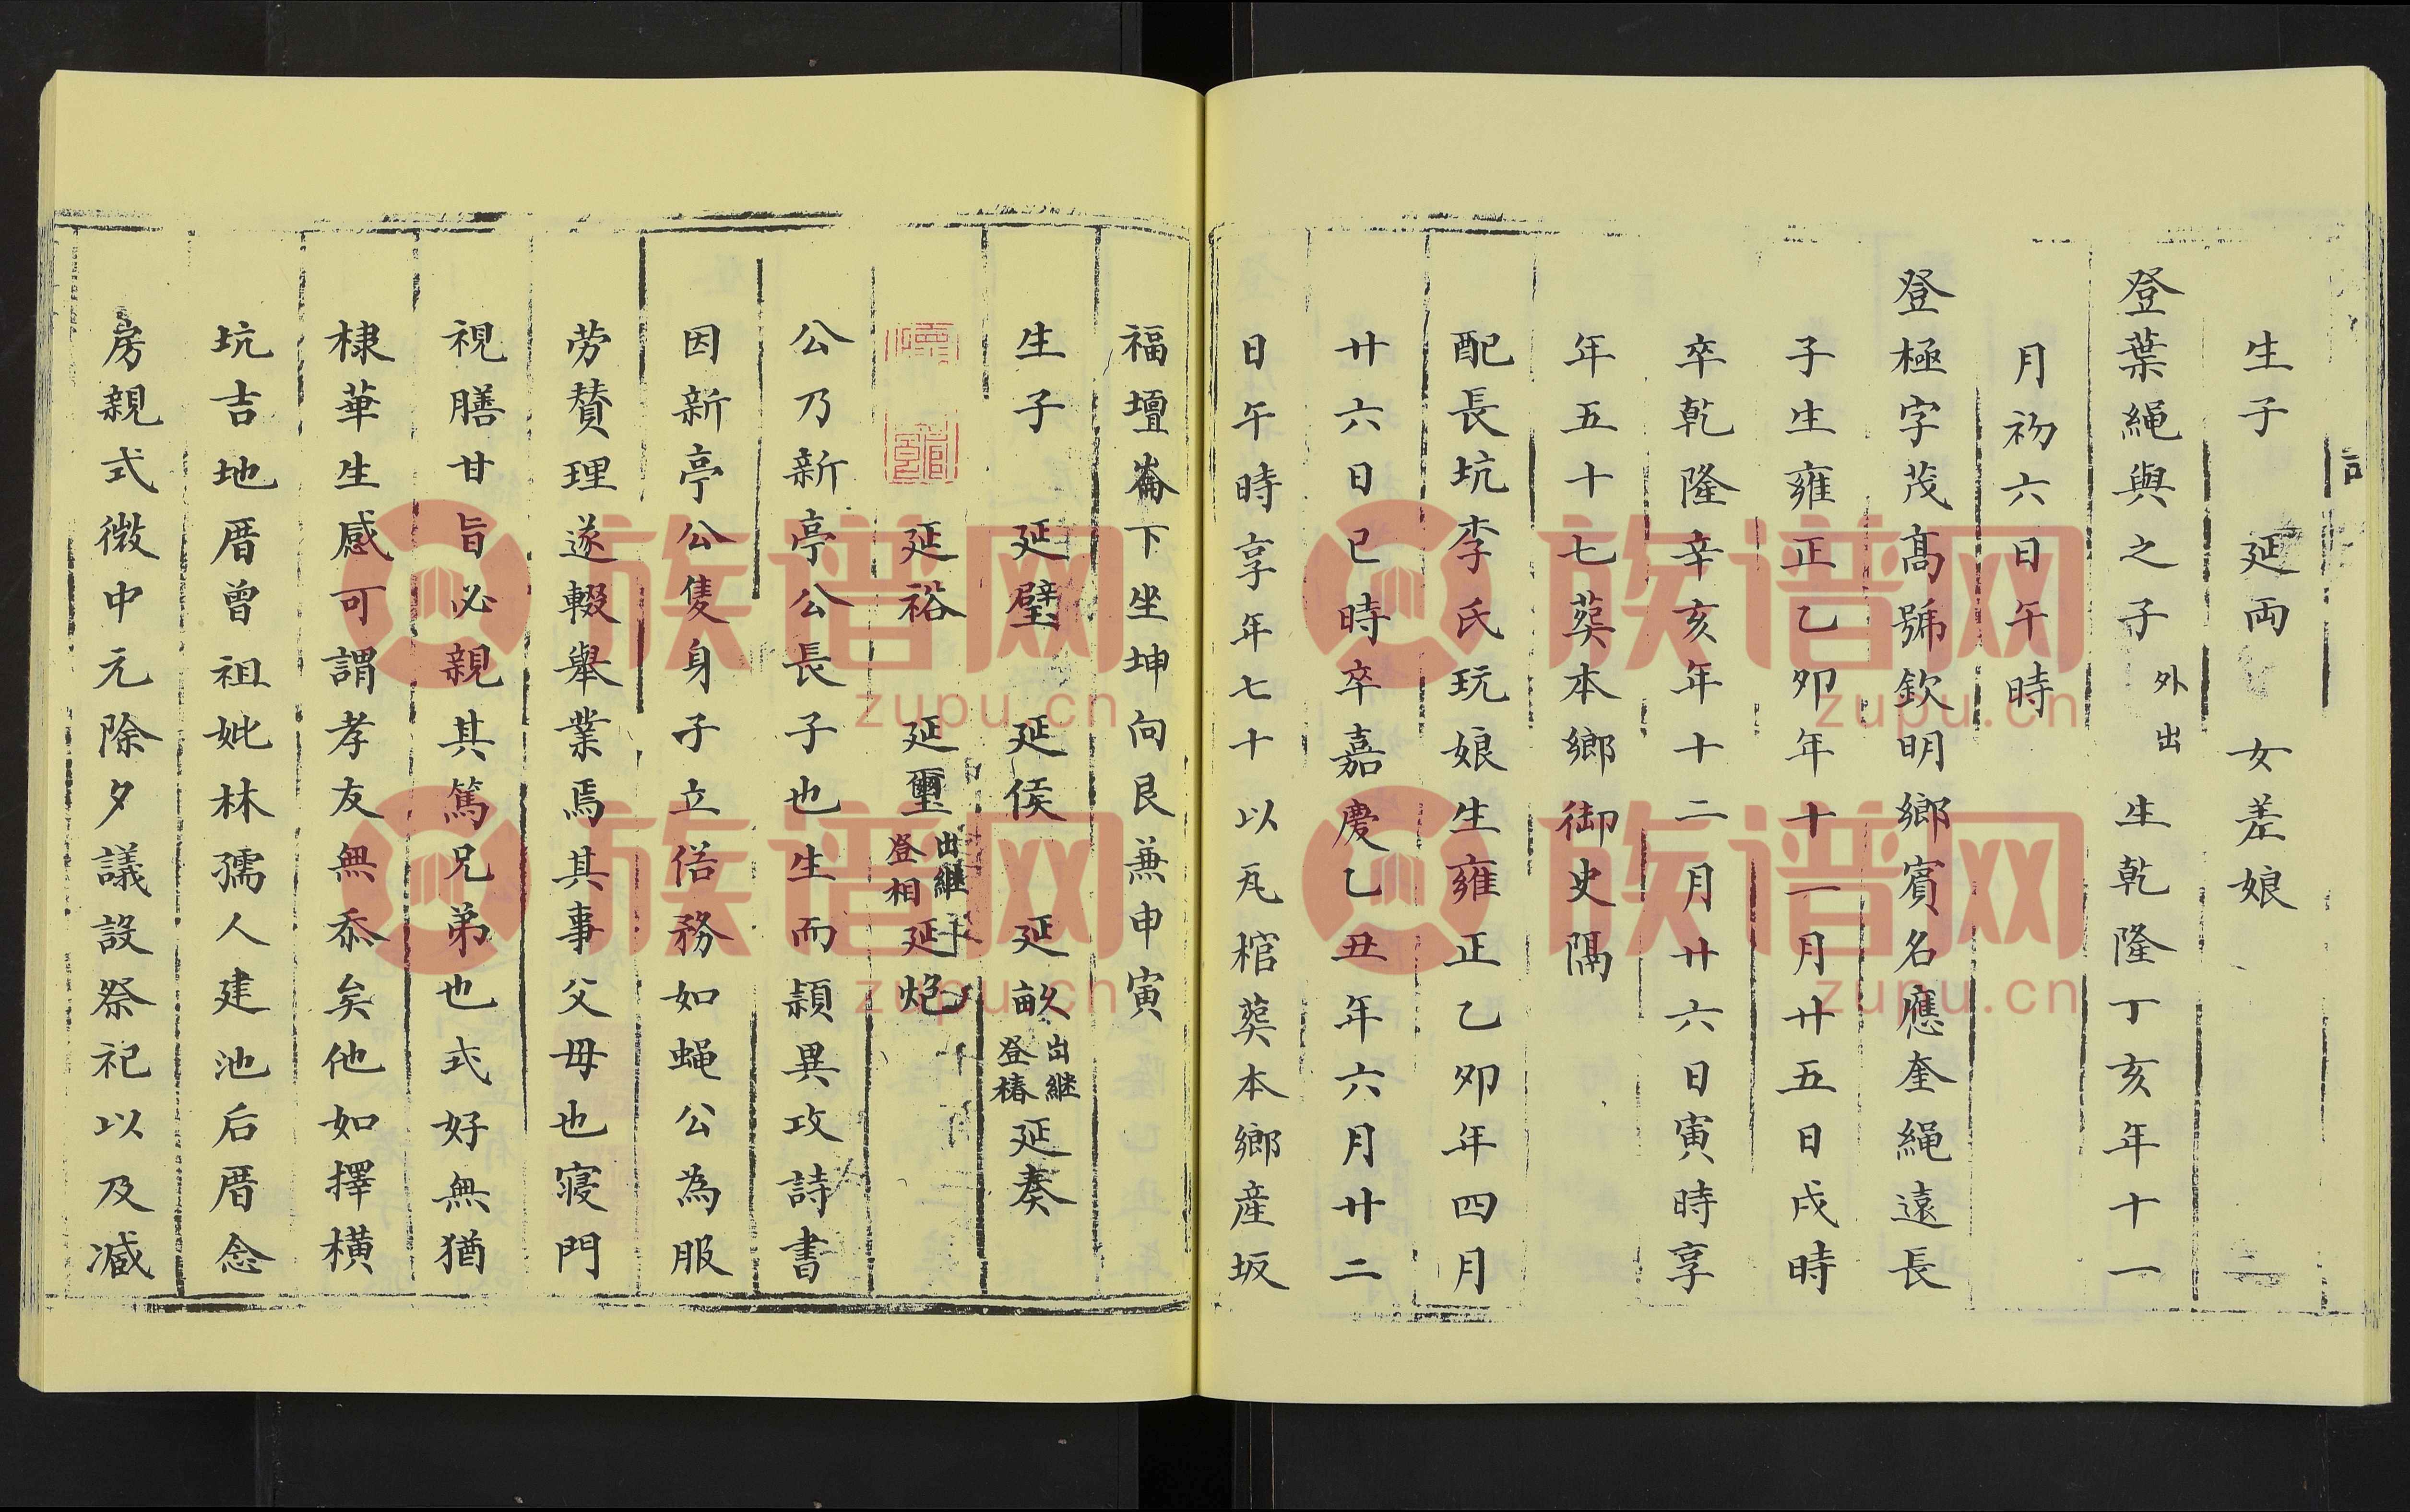 生子 延両 女差娘
登葉繩與之子 外出 生乾隆丁亥年十一
月初六日午時
登極字茂髙號欽明鄉賓名應奎繩遠長
子生雍正乙卯年十一月廿五日戌時
卒乾隆辛亥年十二月廿六日寅時享
年五十七葬本鄉御史隔
配長坑李氏玩娘生雍正乙卯年四月
廿六日巳時卒嘉慶乙丑年六月廿二
日午時享年七十以瓦棺葬本鄉産坂
福壇崙下坐坤向艮兼申寅
生子 延璧 延侯 延畝 出継登椿 延奏
延裕 延璽 出継登相 延炮
公乃新亭公長子也生而頴異攻詩書
因新亭公隻身孑立偌務如蝇公為服
劳賛理遂輟舉業焉其事父母也寝門
視膳甘旨必親其篤兄弟也式好無猶
棣華生感可謂孝友無忝矣他如擇橫
坑吉地厝曾祖妣林孺人建池后厝念
房親式微中元除夕議設祭祀以及减
族谱网
zupu.cn
族谱网
zupu.cn
族谱网
zupu.cn
族谱网
zupu.cn